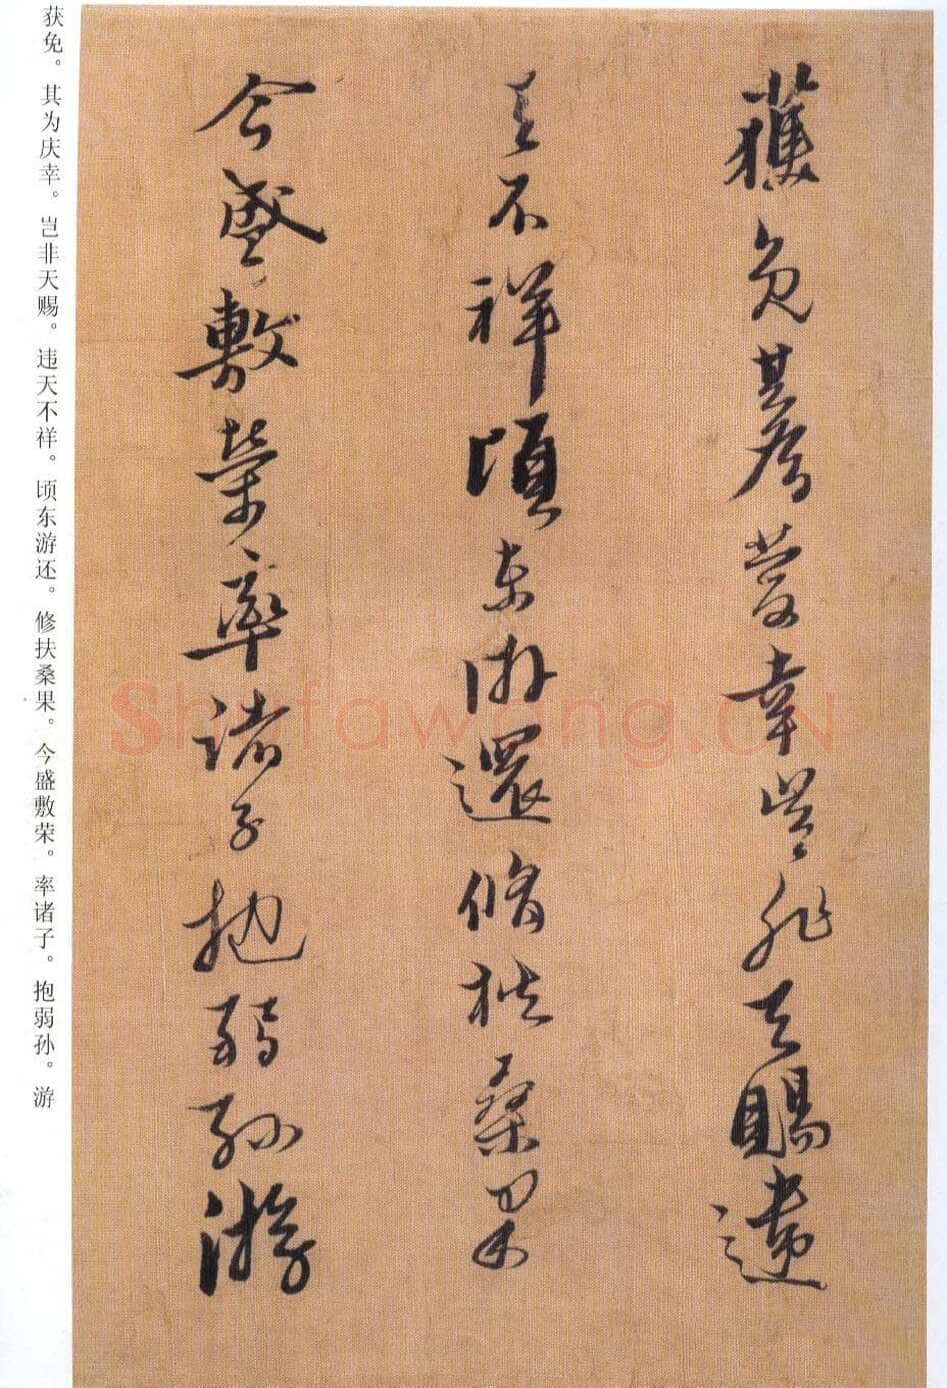 獲免其為慶幸豈非天賜違
天不祥頃東游還修扶桑果
今盛敷榮率諸子抱弱孫游
获免。其为庆幸。岂非天赐。违天不祥。顷东游还。修扶桑果。今盛敷荣。率诸子。抱弱孙。游
Shufawang.CN